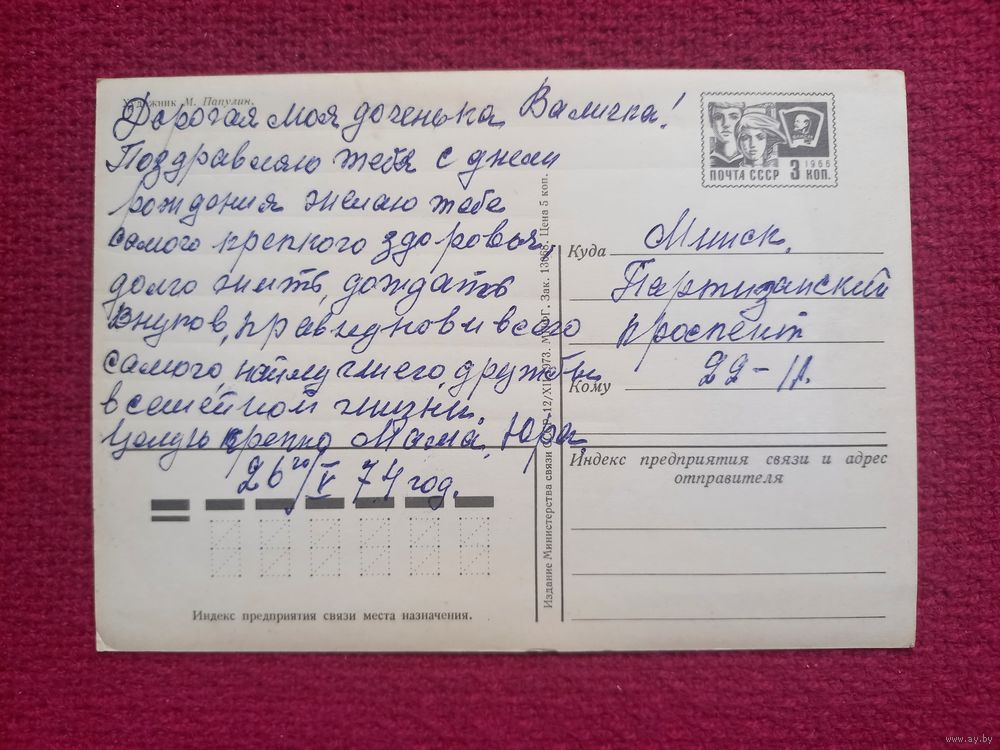 Художник М. Папулин.
Дорогая моя доченька Валичка!
Поздравляю тебя с днем
рождения желаю тебе
самого крепкого здоровья,
долго жить, дождать
внуков, правнуков и всего
самого наилучшего, дружбы
в семейной жизни.
Целую крепко Мама, Юра.
26го/V 74 год.
Индекс предприятия связи места назначения.
Издание Министерства связи СССР 12/XII 1973. МПФГ. Зак. Цена 5 коп.
ПОЧТА СССР 3 КОП.
1966
Куда Минск,
Партизанский
проспект
Кому 22-11.
Индекс предприятия связи и адрес
отправителя
www.ay.by